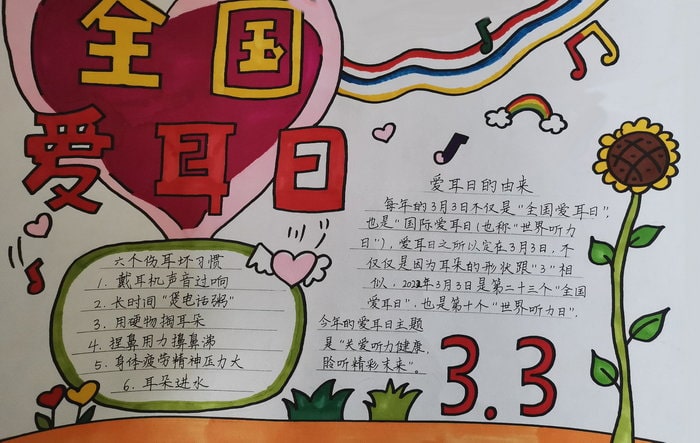 全国
爱耳日
六个伤耳坏习惯
1. 戴耳机声音过响
2. 长时间“煲电话粥”
3. 用硬物掏耳朵
4. 捏鼻用力擤鼻涕
5. 身体疲劳精神压力大
6. 耳朵进水
爱耳日的由来
每年的3月3日不仅是“全国爱耳日”,
也是“国际爱耳日(也称“世界听力
日”), 爱耳日之所以定在3月3日, 不
仅仅是因为耳朵的形状跟“3”相
似, 3月3日是第二十三个“全国
爱耳日”, 也是第十个“世界听力日”.
今年的爱耳日主题
是“关爱听力健康,
聆听精彩未来”。
3.3